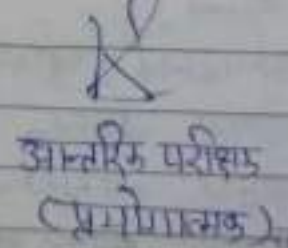 आन्तरिक परीक्षक
(प्रयोगात्मक)